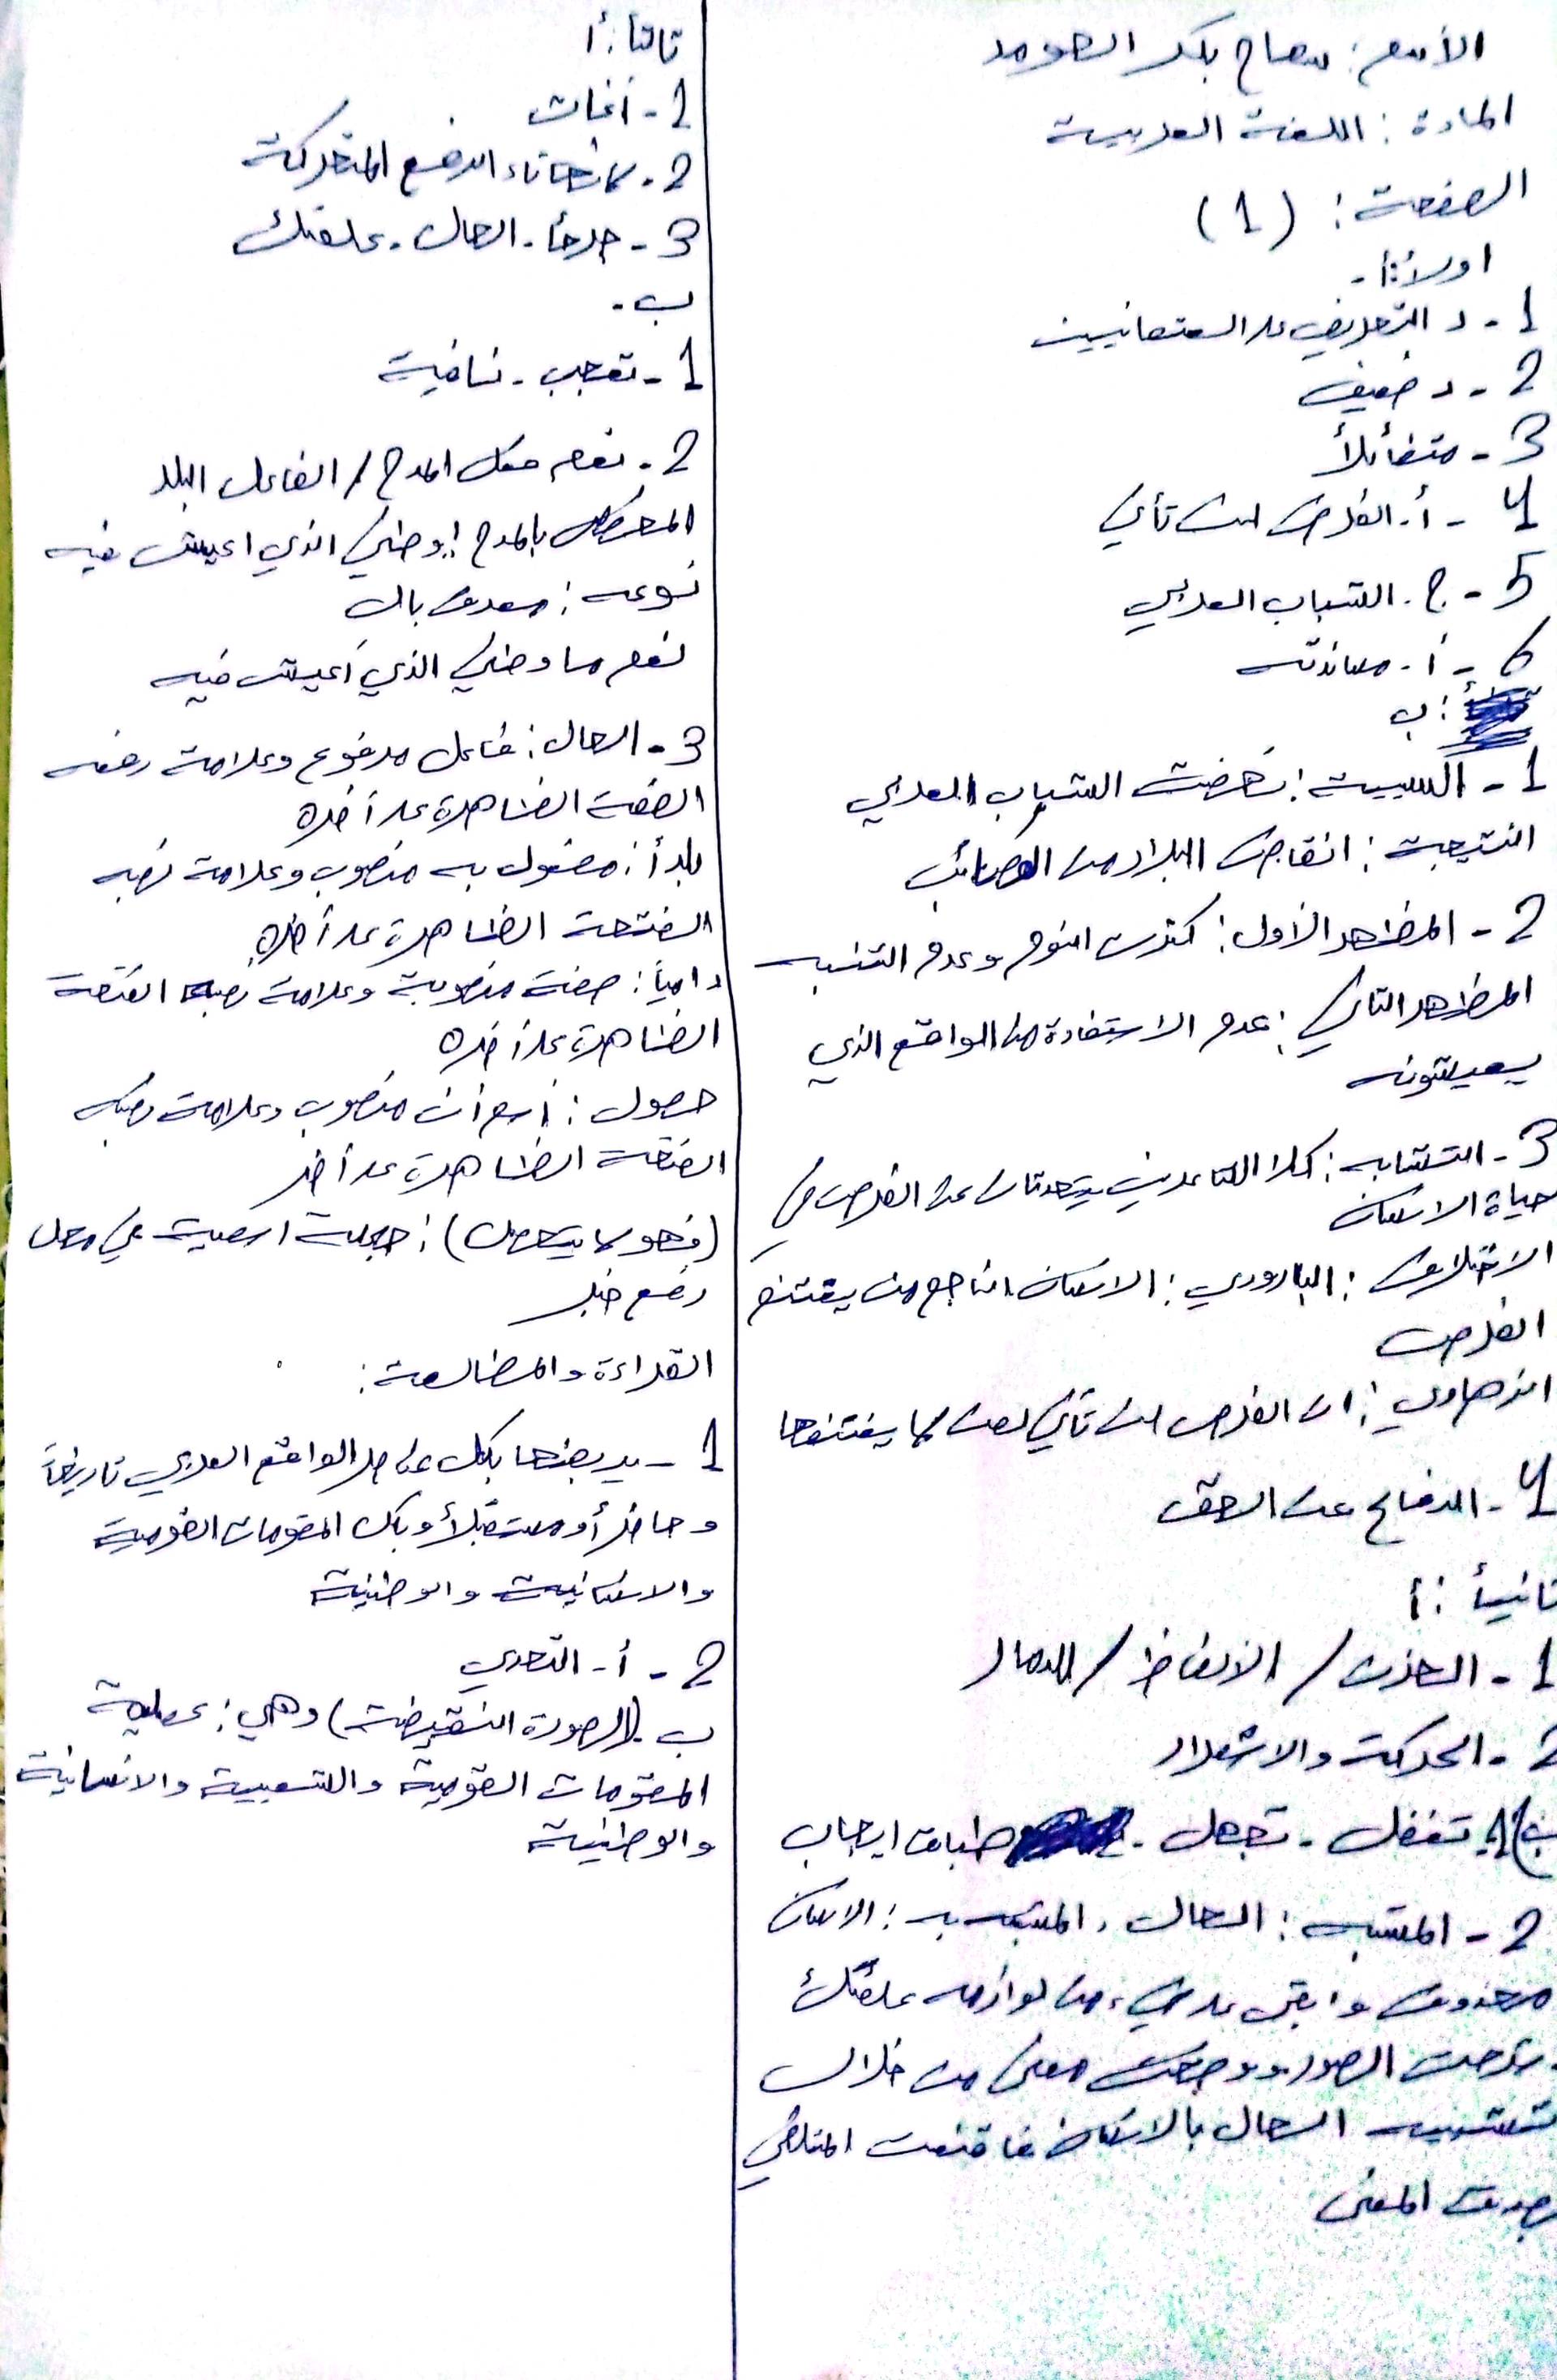 الأسم: سماح بكر الحومد
المادة: اللغة العربية
الصفحة: (1)
اولاً: أ-
1- د التعريض بالعثمانيين
2- د ضعيف
3- متفائلاً
4- أ. الفرص لن تأتي
5- ج. الشباب العربي
6- أ. مساندته
ب:
1- السببية: نهضت الشباب العربي
النتيجة: انقاض البلاد من المصائب
2- المظهر الاول: كثرت النوم وعدم التنبه
المظهر الثاني: عدم الاستفادة من الواقع الذي
يعيشونه
3- التشابه: كلا الشاعرين يتحدثان عن الفرص في
حياة الانسان
الاختلاف: البارودي: الانسان الناجح من يغتنم
الفرص
الزهاوي: ان الفرص لن تأتي لمن لا يغتنمها
4- الدفاع عن الحق
ثانياً: أ
1- الحزن / الانفاظ / الدمار
2- الحركة والاشعلار
ب) 1. تغفل - تجهل - طباق ايجاب
2- المشبه: الحال، المشبه به: الانسان
محذوف وابقى على شيء من لوازمه علمتك
شرحت الصور ووضحت معنى من خلال
تشبيه الحال بالانسان فاقنعت المتلقي
بهدف المعنى
ثالثاً: أ
1- أغاث
2- لاتصاله بتاء الرفع المتحركة
3- جرحاً - الحال - علمتك
ب-
1- تعجب - نافية
2- نعم فعل المدح / الفاعل البلد
المخصوص بالمدح: وطني الذي اعيش فيه
نوعه: معرف بال
نعم ما وطني الذي أعيش فيه
3- الحال: فاعل مرفوع وعلامة رفعه
الضمة الظاهرة على أخره
بلداً: مفعول به منصوب وعلامة نصبه
الفتحة الظاهرة على أخره
دامياً: صفة منصوبة وعلامة نصبها الفتحة
الظاهرة على أخره
حصول: اسم أن منصوب وعلامة نصبه
الفتحة الظاهرة على أخر
(فهو لا يتحمل): جملة اسمية في محل
رفع خبر
القراءة والمطالعة:
1- يربطها بكل عناصر الواقع العربي تاريخاً
وحاضراً ومستقبلاً وبكل المقومات القومية
والانسانية والوطنية
2- أ- التحدي
ب. (الصورة النقيضة) وهي: عملية
المقومات القومية والشعبية والانسانية
والوطنية